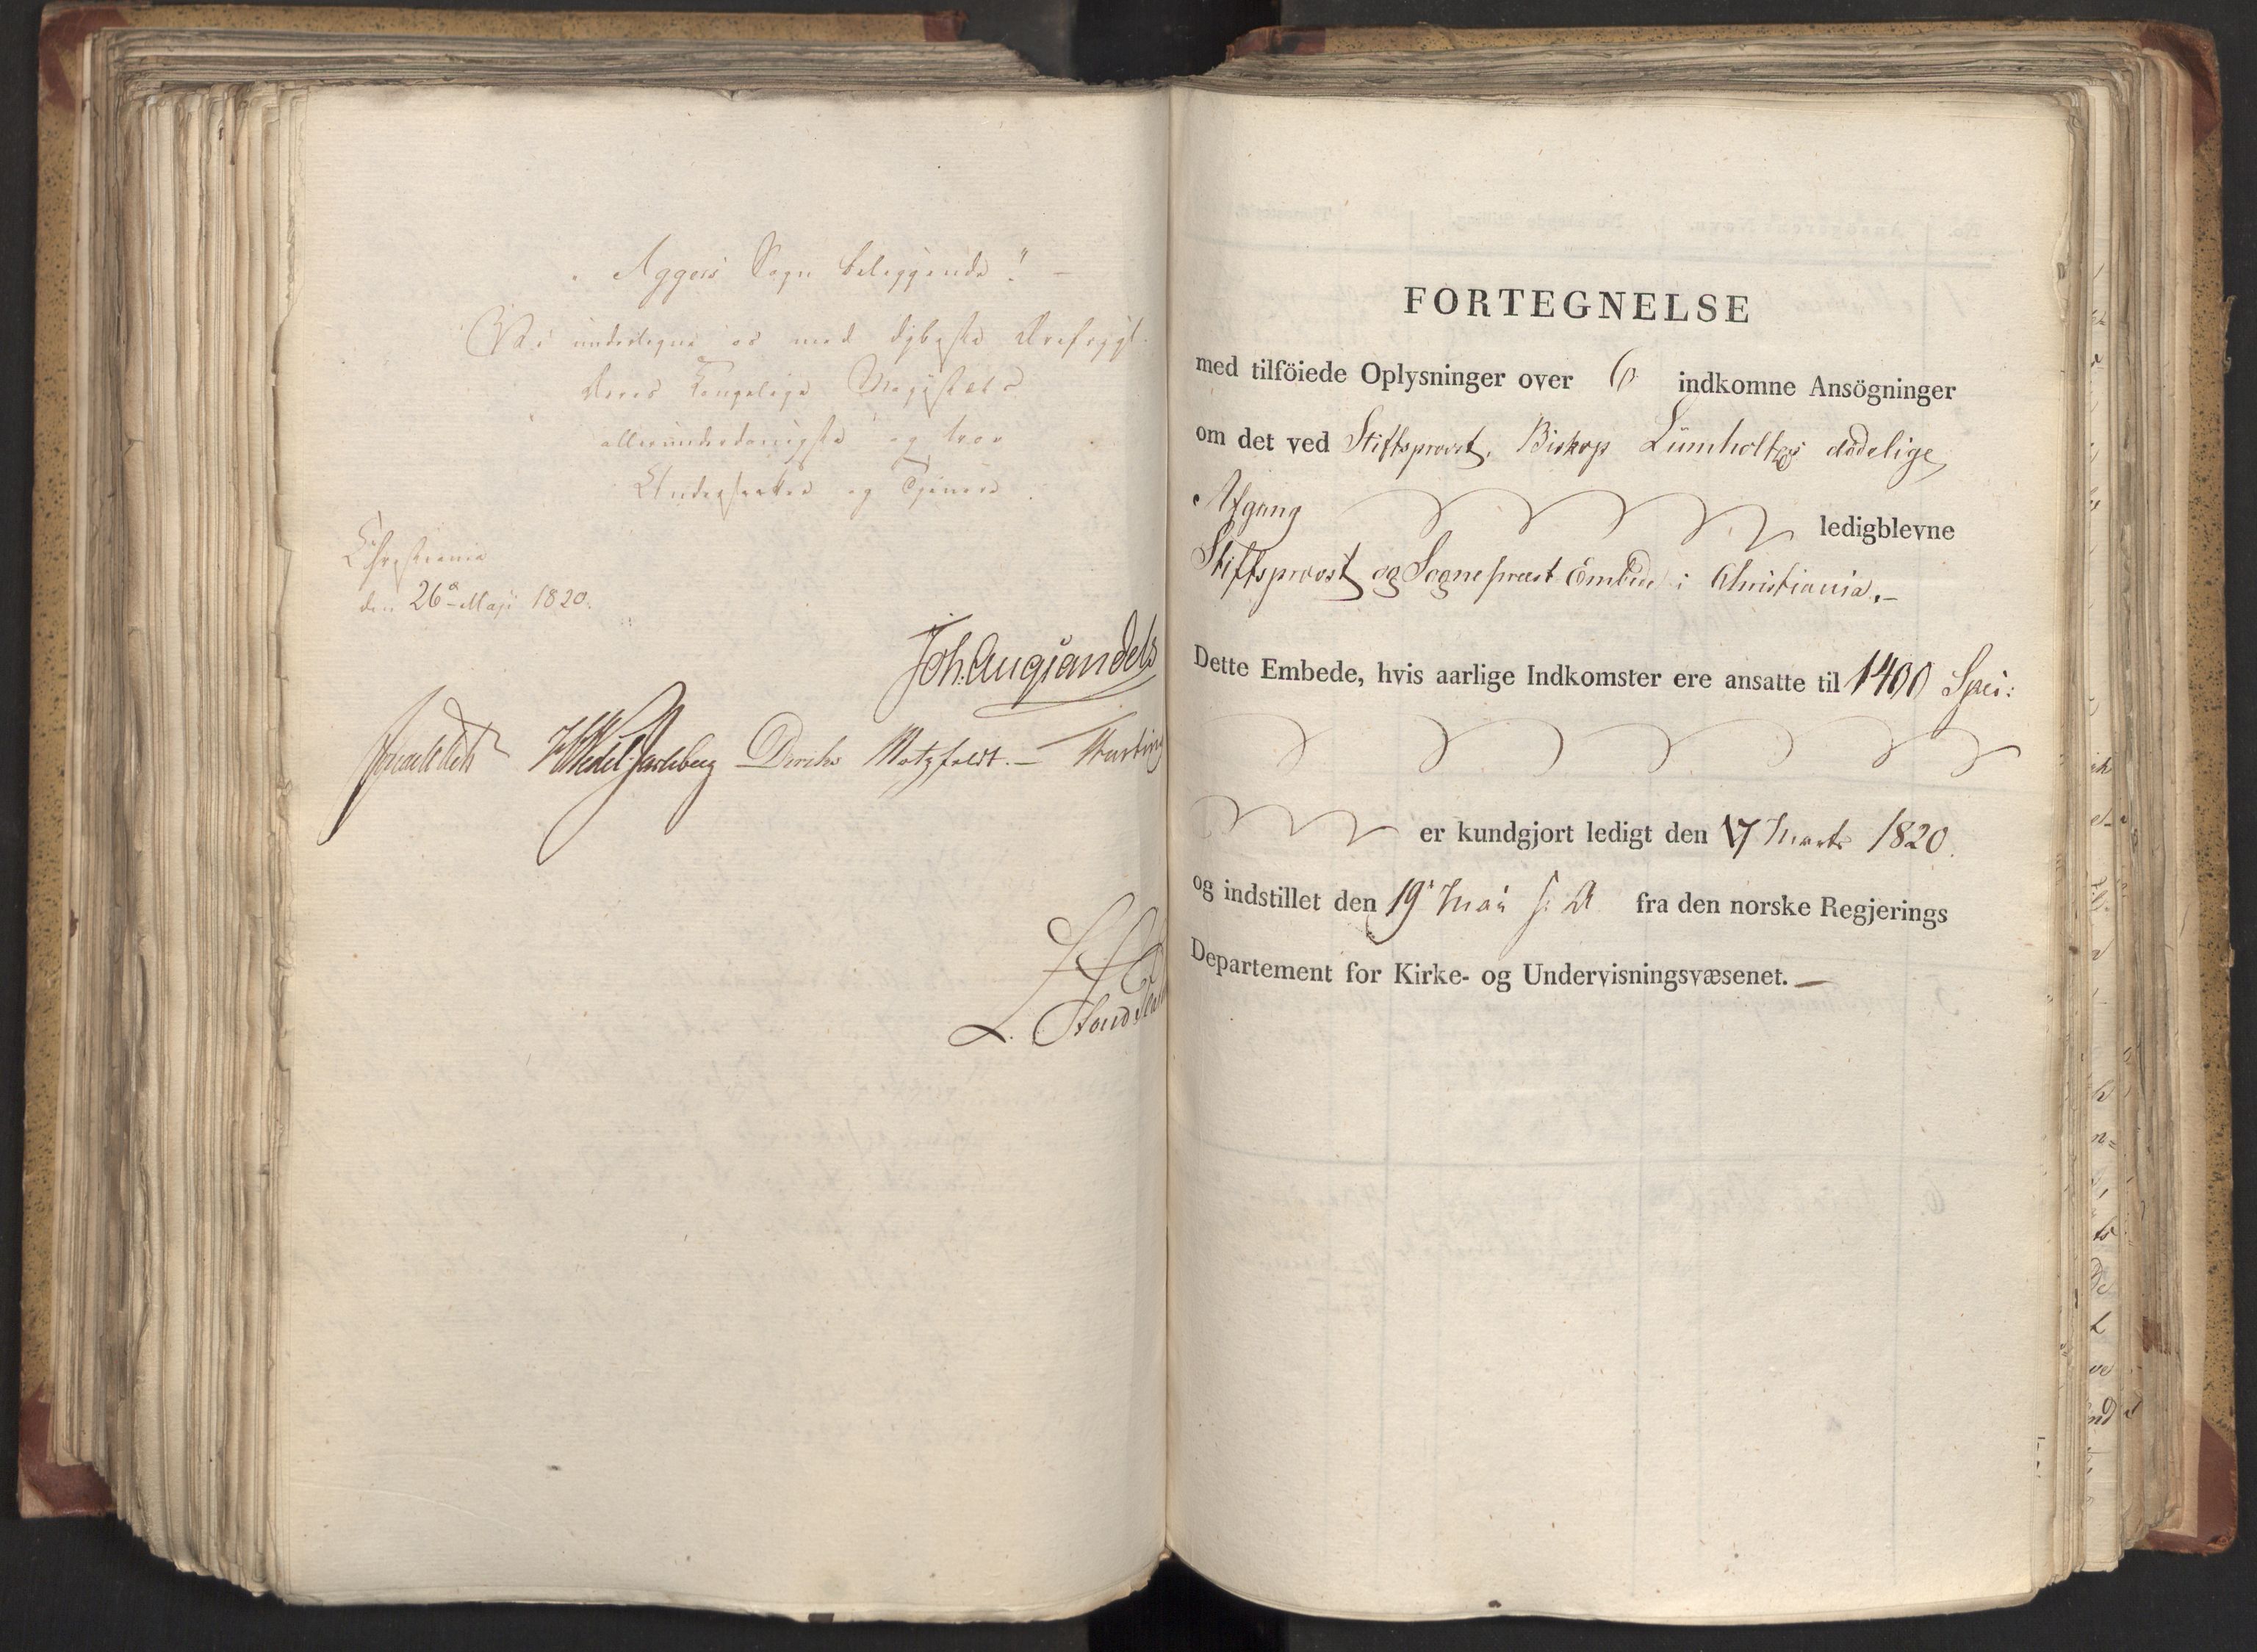 „Aggers Sogn beliggende." —
Vi undertegne os med dybeste Ærefrygt
Deres Kongelige Majestæts
allerunderdanigste og troe
Undersaatter og Tjenere
Christiania
den 26de Maji 1820.
Joh. Aug Sandels
H Wedel Jarlsberg Diriks Motzfeldt. —
FORTEGNELSE
med tilföiede Oplysninger over 6 indkomne Ansögninger
om det ved Stiftsprovst, Biskop Lumholtzes dødelige
Afgang ledigblevne
Stiftsprovst og Sognepræst Embede i Christiania. —
Dette Embede, hvis aarlige Indkomster ere ansatte til 1400 Spei:
er kundgjort ledigt den 17 Marts 1820.
og indstillet den 19 Mai s. A fra den norske Regjerings
Departement for Kirke- og Undervisningsvæsenet. —